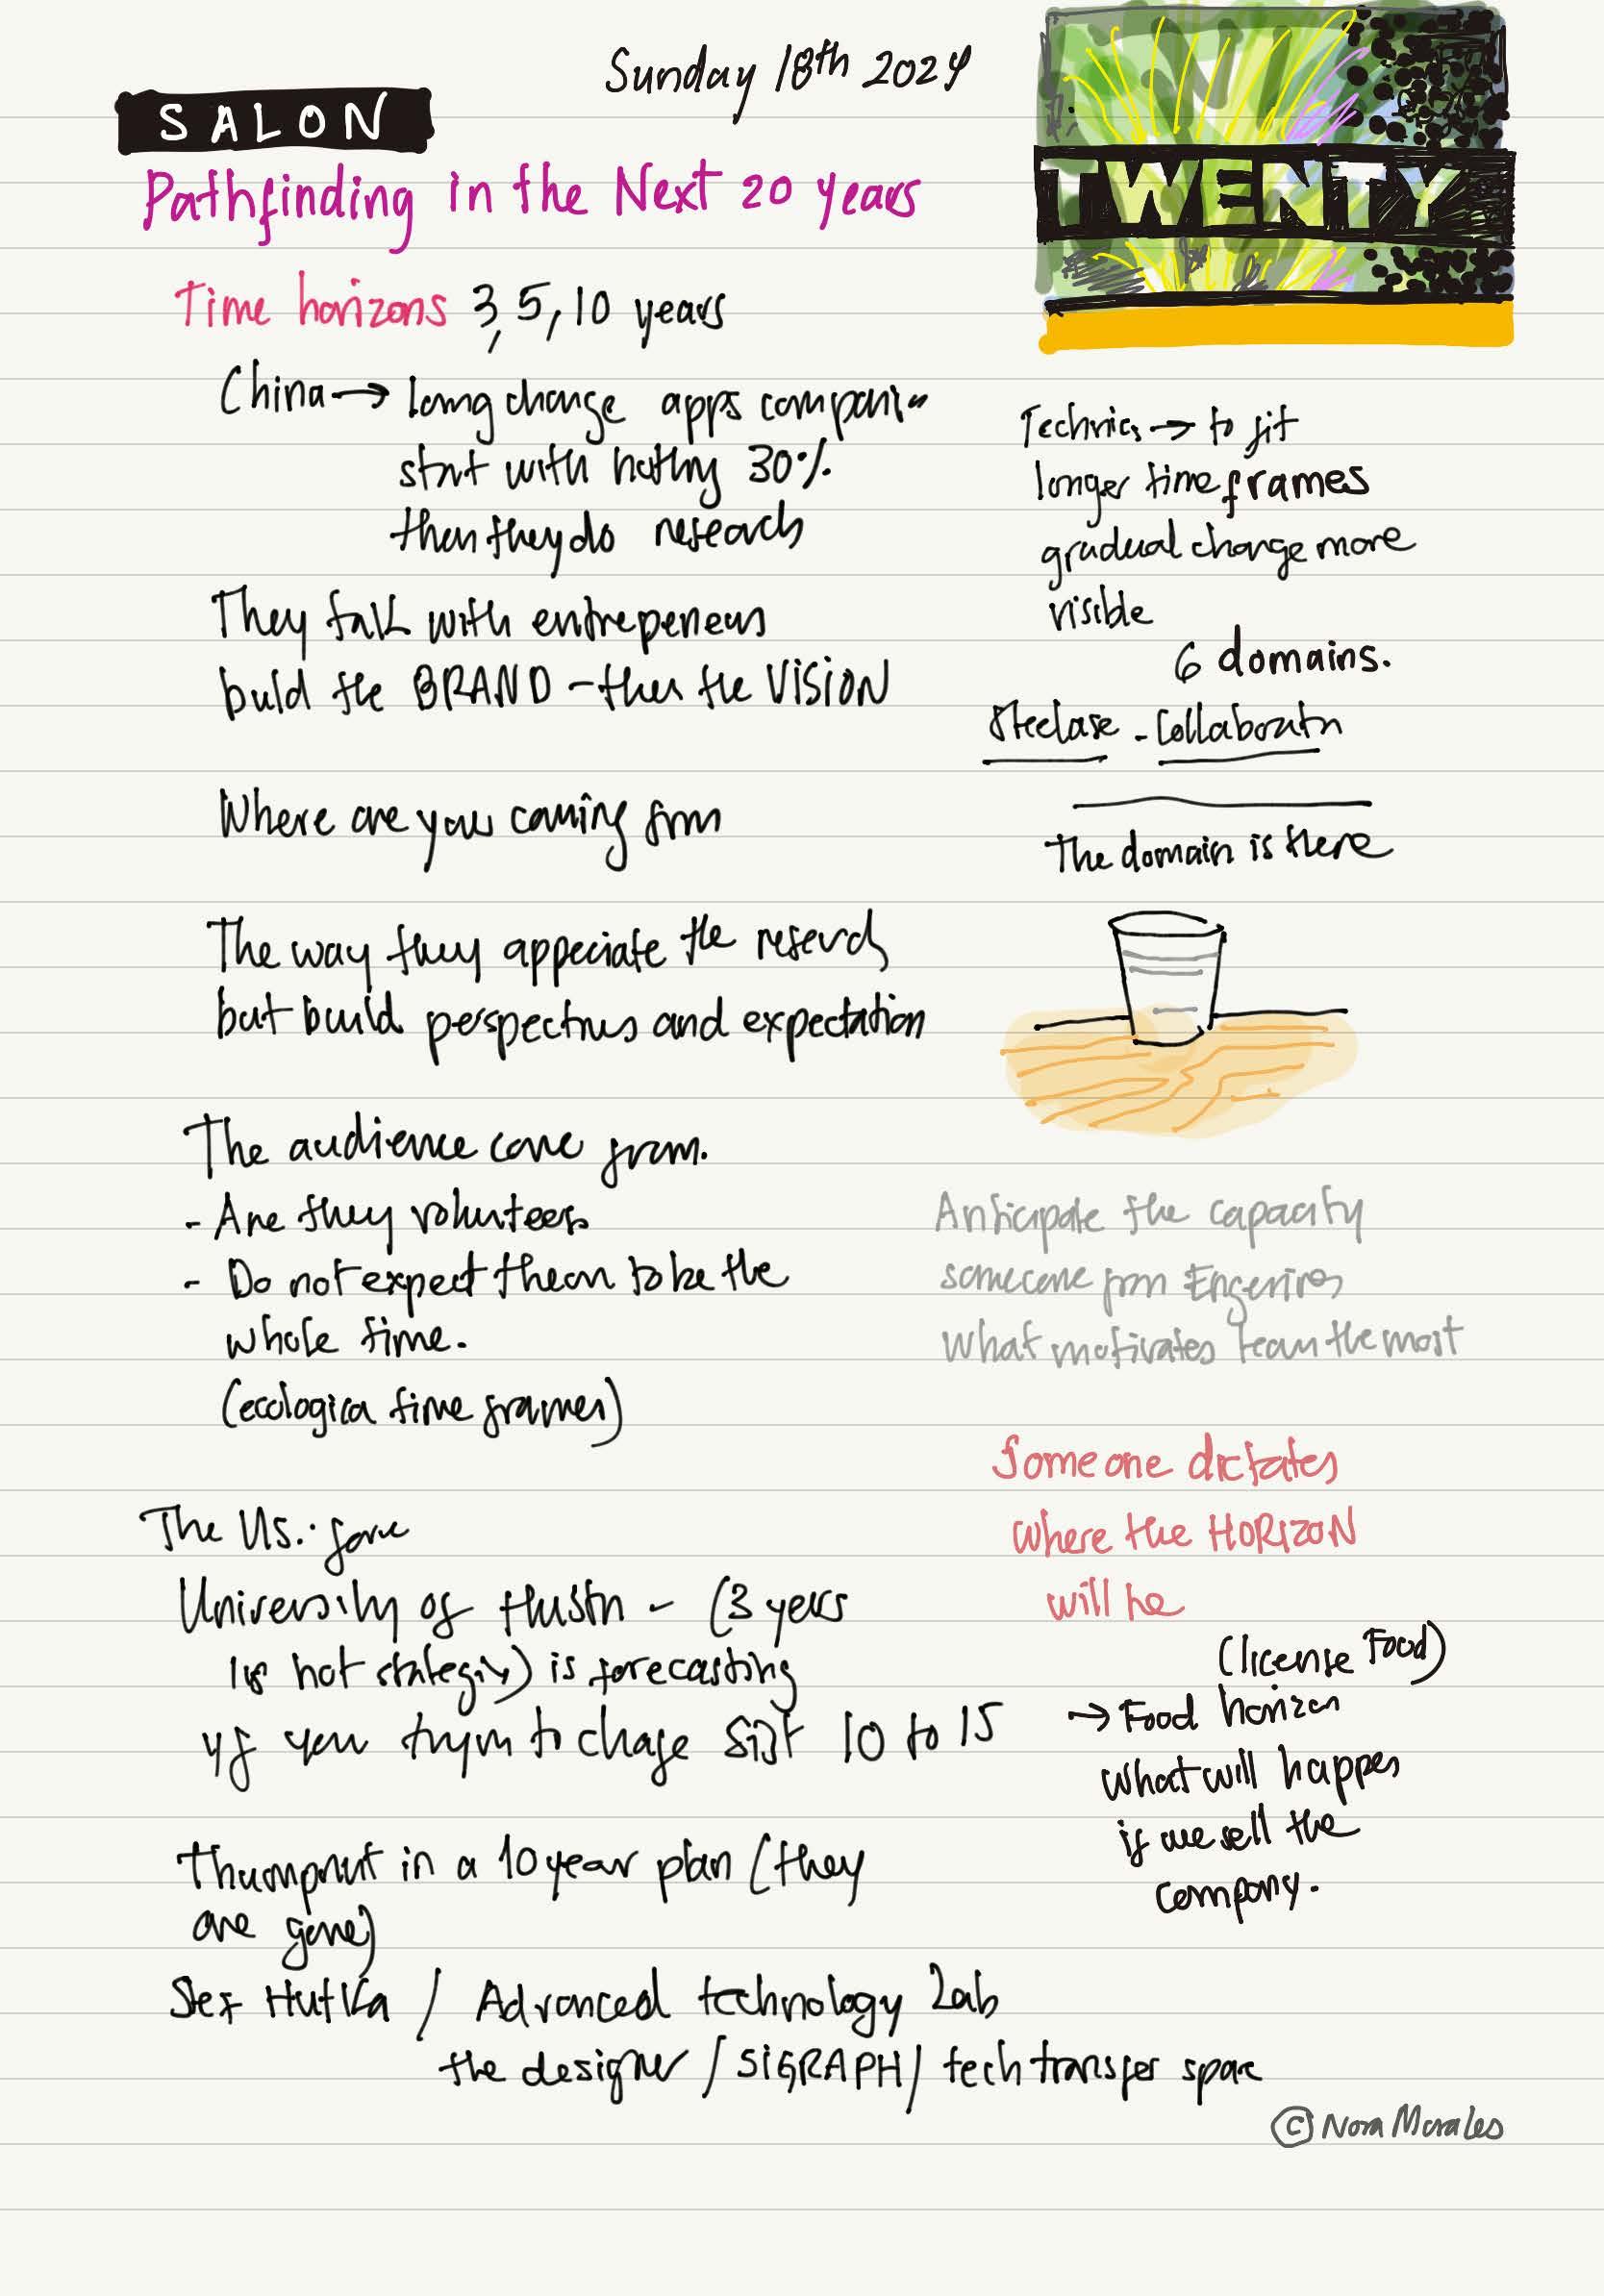 Sunday 18th 2024
SALON
TWENTY
Pathfinding in the Next 20 years
Time horizons 3, 5, 10 years
China → long change apps
start with nothing 30%
then they do research
They talk with entrepeneus
build the BRAND - then the VISION
Where are you coming from
The way they appeciate the reserch
but build perspectives and expectation
The audience come from.
- Are they volunteers
- Do not expect them to be the
whole time.
(ecologica time frames)
The US.
University of - (3 years
is not strategy) is forecasting
yf you to chage 10 to 15
in a 10 year plan (they
are gone)
Hutka / Advanced technology Lab
the designer / SIGRAPH / tech transfer space
Technics → to fit
longer time frames
gradual change more
visible
6 domains.
Steelcase - Collaboratn
The domain is there
Anticipate the capacity
someone from
What motivates team the most
Someone dictates
where the HORIZON
will be
(license Food)
→ Food horizon
What will happen
if we sell the
company.
© Nora Morales